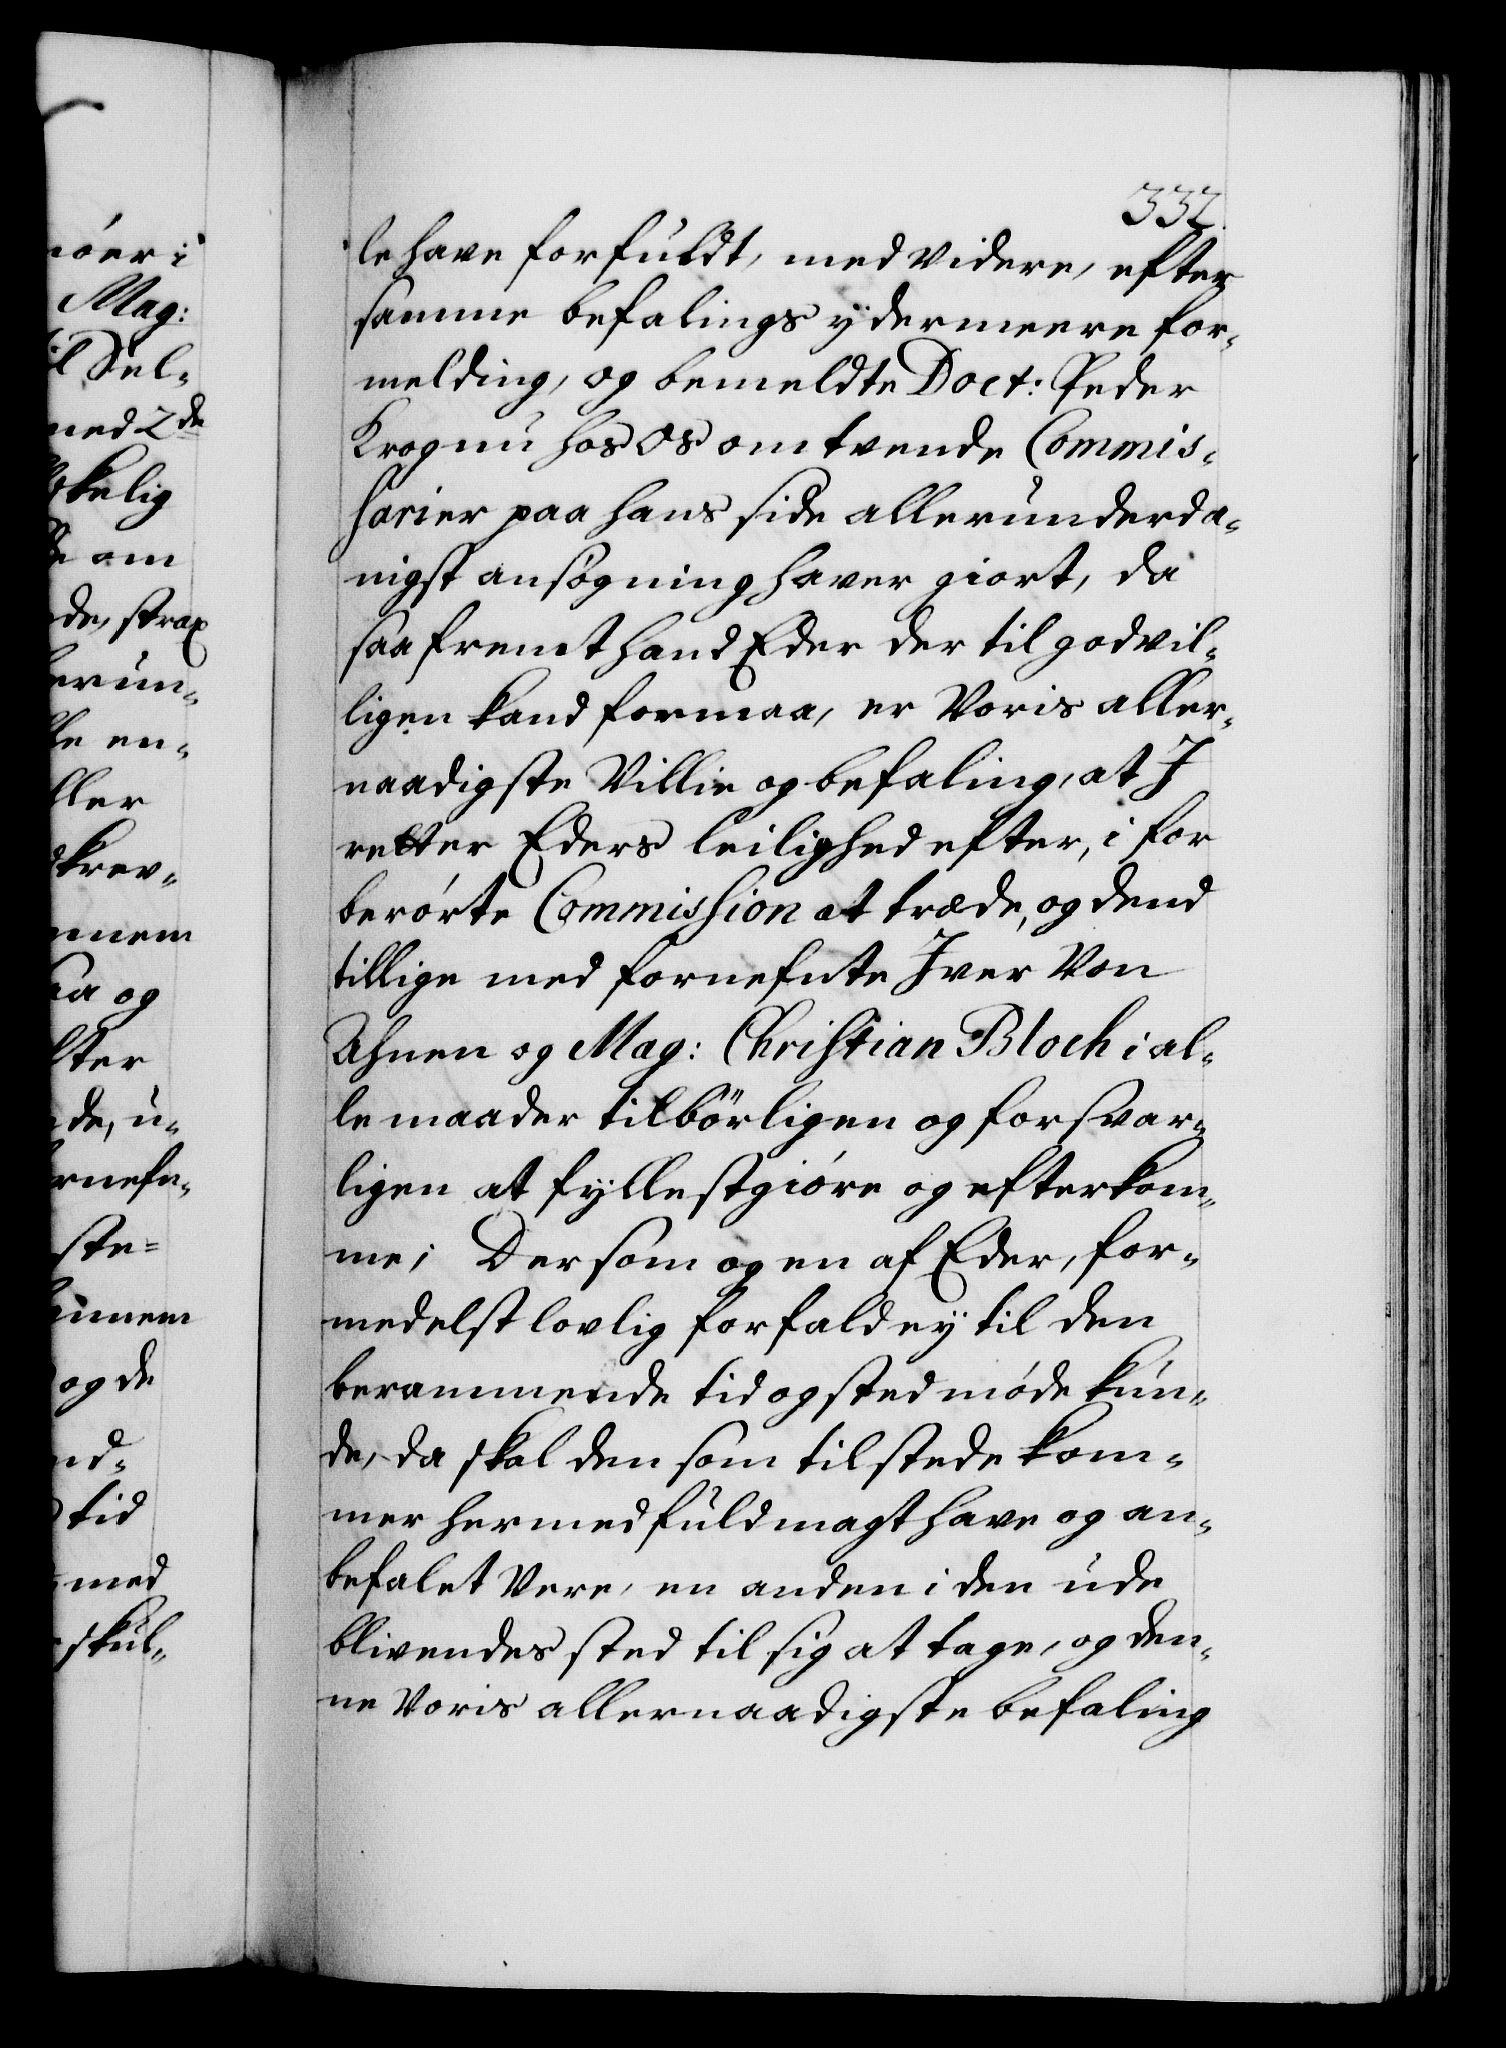 332.
le have forfuldt, med videre, efter
samme befalings ydermeere for-
melding, og bemeldte Doct: Peder
Krog nu hos os om tvende Commis-
sarier paa hans side allerunderda-
nigst ansøgning haver giort, da
saafremt hand Eder der til godvil-
ligen kand formaa, er Voris aller-
naadigste Villie og befaling, at I
retter Eders leilighed efter, i for
berørte Commission at træde, og dend
tillige med fornefnte Iver Von
Ahnen og Mag: Christian Bloch i al-
le maader tilbørligen og forsvar-
ligen at fyllestgiøre og efterkom-
me; Dersom og en af Eder, for-
medelst lovlig forfald ey til den
berammende tid og sted møde kun-
de, da skal den som tilstede kom-
mer hermed fuldmagt have og an-
befalet Vere, en anden i den ude
blivendes sted til sig at tage, og den-
ne Voris allernaadigste befaling
nøer i
Mag:
til Sel-
med 2de
kelig
om
de, strax
erun-
en-
ller
krev-
nnem
og
de, u-
ornefn-
ste=
og de
nd-
tid
med
skul-